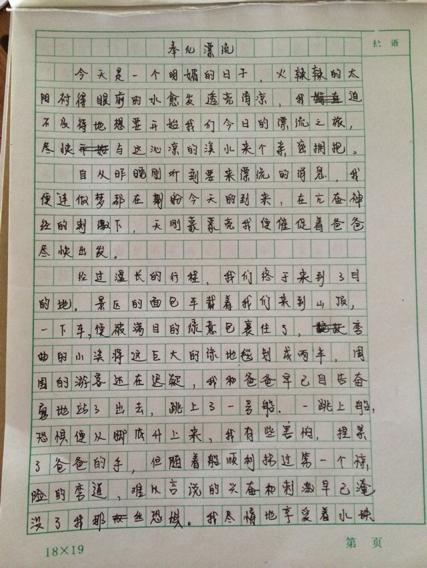 奉化漂流
批语
今天是一个明媚的日子，火辣辣的太
阳衬得眼前的水愈发透亮清凉，我迫
不及待地想要开始我们今日的漂流之旅，
尽快与这沁凉的溪水来个亲密拥抱。
自从昨晚刚听到要来漂流的消息，我
便连做梦都在盼今天的到来，在亢奋神
经的刺激下，天刚蒙蒙亮我便催促着爸爸
尽快出发。
经过漫长的行程，我们终于来到了目
的地。景区的面包车载着我们来到山顶，
一下车，便被满目的绿意包裹住了，弯
曲的小溪将这巨大的绿地毯划成两半，周
围的游客还在迟疑，我和爸爸早已自告奋
勇地跑了出去，跳上了一号船。一跳上船，
恐惧便从脚底升上来，我有些害怕，捏紧
了爸爸的手，但随着船顺利接过第一个惊
险的弯道，难以言说的兴奋和刺激早已淹
没了我那丝恐惧。我尽情地享受着水珠
18×19
第 页